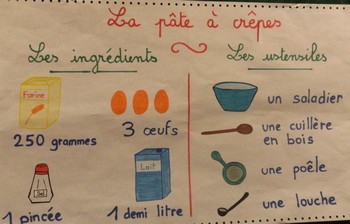 La pâte à crêpes
Les ingrédients
Farine
250 grammes
3 œufs
1 pincée
Lait
1 demi litre
Les ustensiles
un saladier
une cuillère
en bois
une poêle
une louche